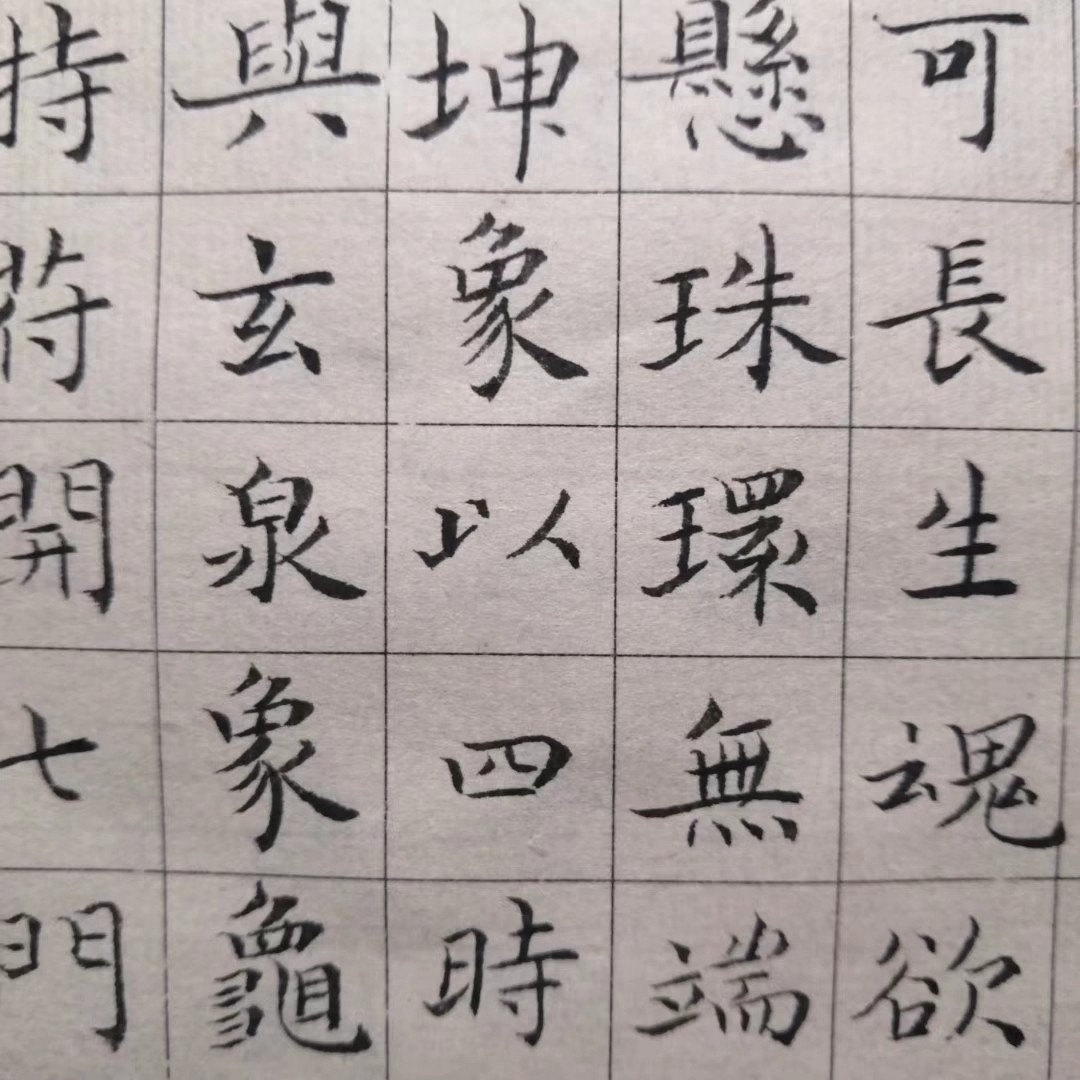 可長生魂欲
懸珠環無端
坤象以四時
與玄泉象龜
持苻開七門